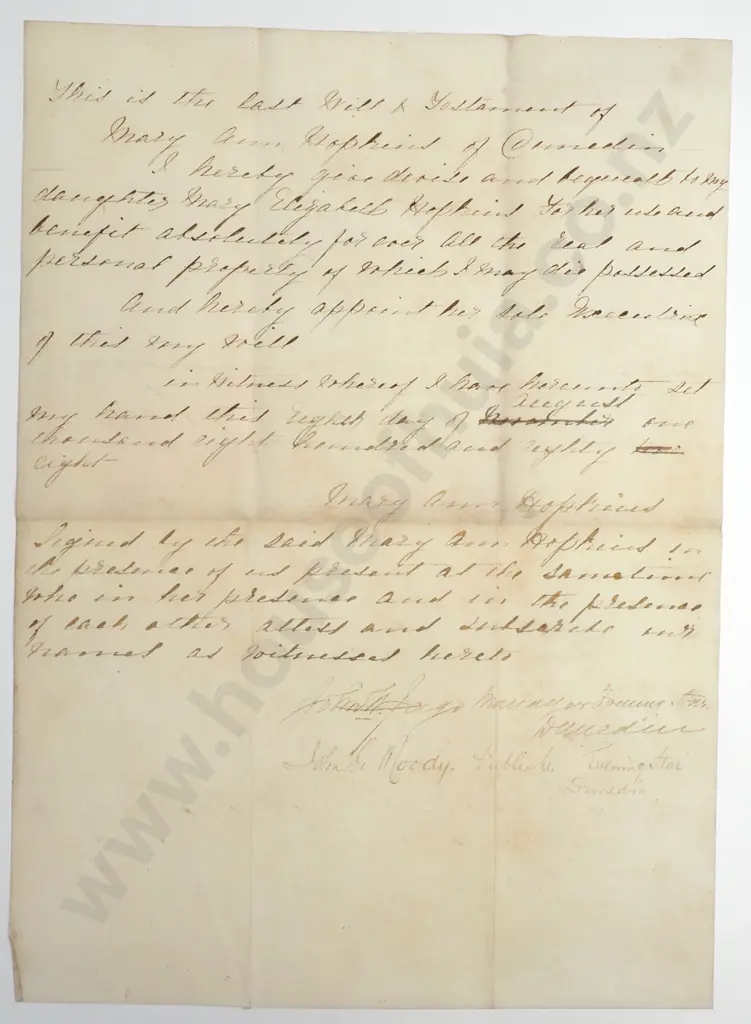 This is the last Will & Testament of
Mary Ann Hopkins of Dunedin
I hereby give devise and bequeath to my
daughter Mary Elizabeth Hopkins For her use and
benefit absolutely for ever all the real and
personal property of which I may die possessed
And hereby appoint her sole Executrix
of this my will
in Witness Whereof I have hereunto set
August
my hand this Eighth day of November one
thousand eight hundred and eighty
eight
Mary Ann Hopkins
Signed by the said Mary Ann Hopkins in
the presence of us present at the sametime
who in her presence and in the presence
of each other attest and subscribe our
names as Witnesses hereto
Manager Evening Star
Dunedin
John G Moody. Publisher Evening Star
Dunedin
www.homeofhuia.co.nz